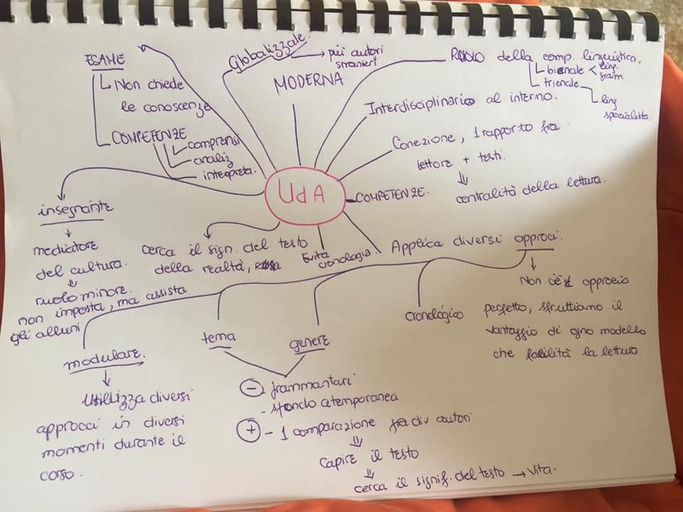 ESAME
Non chiede
le conoscenze
COMPETENZE
comprensi
analiz
interpreta.
Globalizzale
più autori
stranieri
MODERNA
RUOLO della comp. linguistica.
bienale
ling.
trienale
ling
specialita
Interdisciplinarico al interno.
Conezione, 1 rapporto fra
lettore + testi.
centralità della lettura.
UdA
COMPETENZE.
insegnante
mediatore
del cultura.
ruolo minore.
non imposta, ma assista
gli alluni
cerca il sign. del testo
della realtà,
Evita
cronologia
Applica diversi approci.
Non c'è approcio
perfetto, sfruttiamo il
vantaggio di ogno modello
che facilità la lettura
cronológico
genere
tema
modulare.
Utilizza diversi
approcci in diversi
momenti durante il
corso.
- frammantari
- sfondo catemporanea
+ - 1 comparazione fra div autori
capire il testo
cerca il signif. del testo → vita.